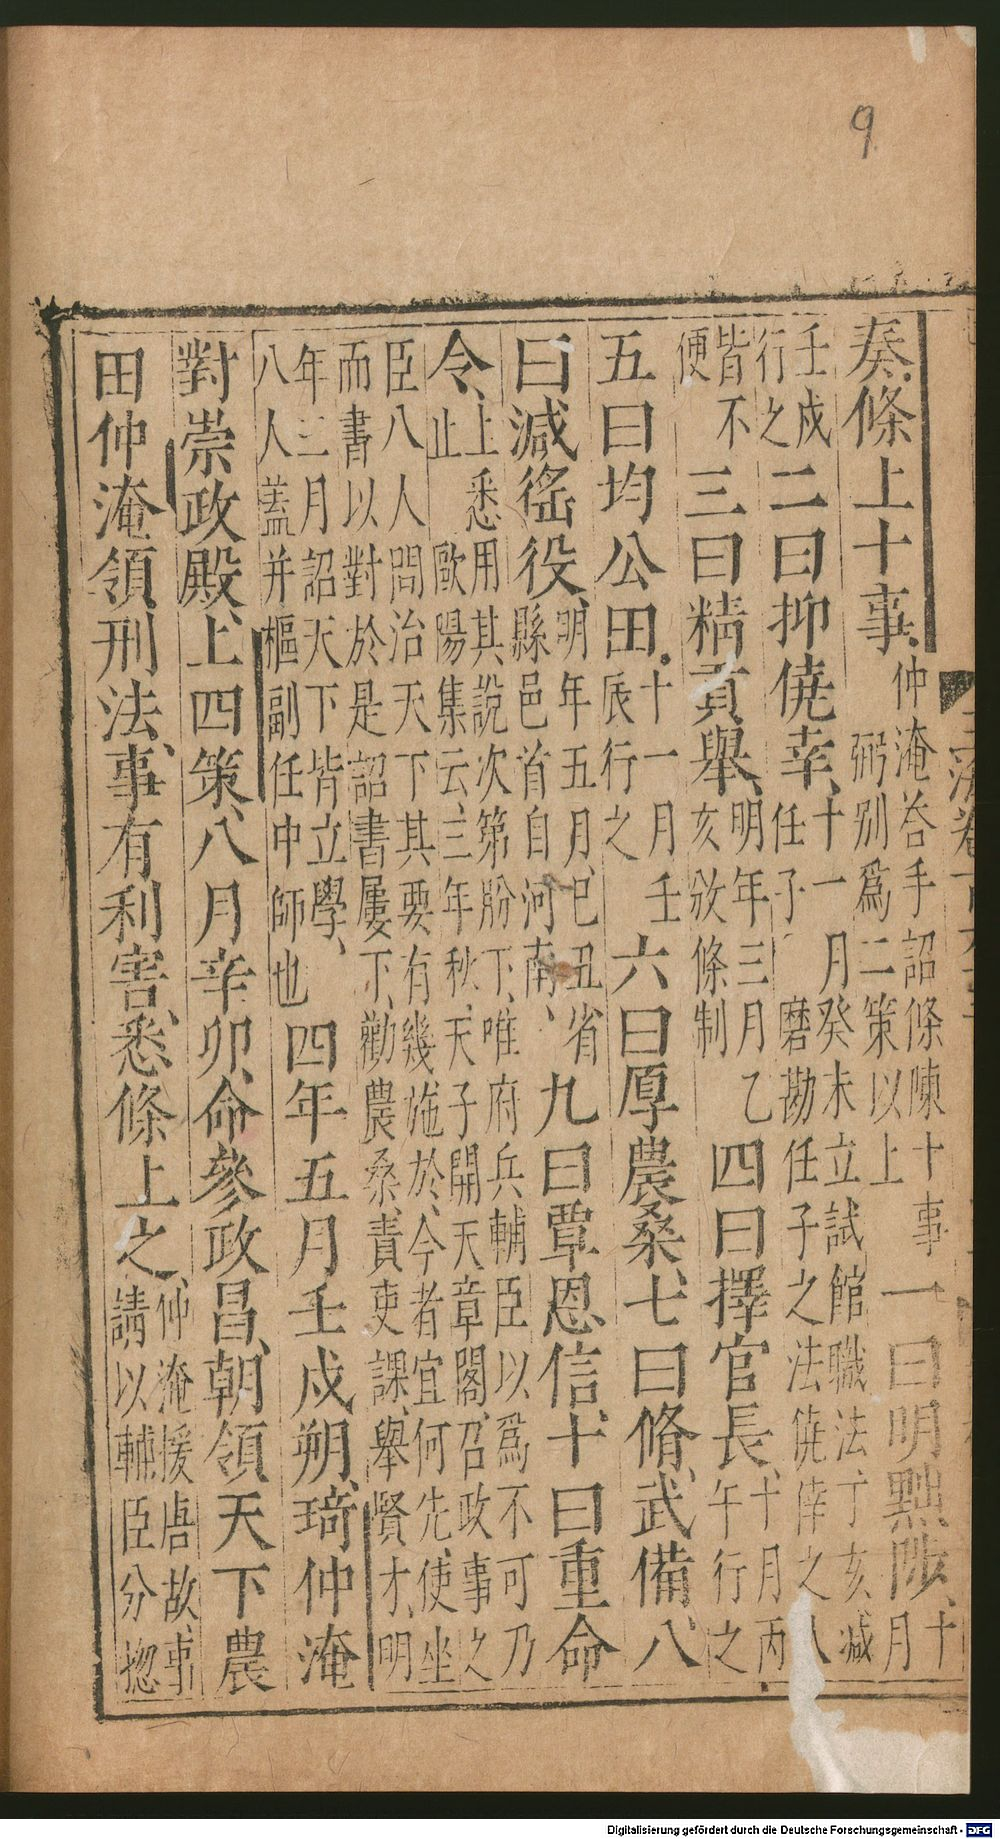 奏條上十事仲淹荅手詔條陳十事弼别爲二策以上一曰明黜陟十月
壬戍行之二曰抑僥幸十一月癸未立試館職法丁亥减任子磨勘任子之法僥倖之人
皆不便三曰精貢舉明年三月乙亥攽條制四曰擇官長十月丙午行之
五曰均公田十一月壬辰行之六曰厚農桑七曰脩武備八
曰減徭役明年五月巳丑省縣邑首自河南九曰覃恩信十曰重命
令上悉用其說次第頒下唯府兵輔臣以爲不可乃止歐陽集云三年秋天子開天章閣召政事之
臣八人問治天下其要有幾施於今者宜何先使坐而書以對於是詔書屢下勸農桑責吏課舉賢才明
年三月詔天下皆立學八人蓋并樞副任中師也四年五月壬戍朔琦仲淹
對崇政殿上四策八月辛卯命參政昌朝領天下農
田仲淹領刑法事有利害悉條上之仲淹援唐故事請以輔臣分揔
9
Digitalisierung gefördert durch die Deutsche Forschungsgemeinschaft - DFG